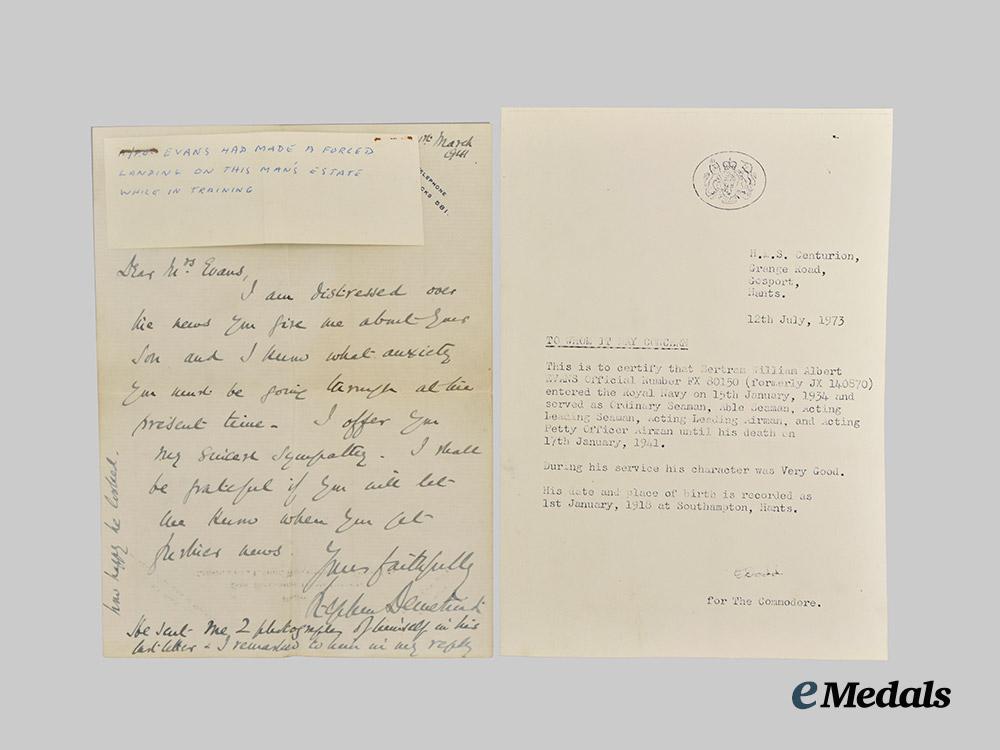 EVANS HAD MADE A FORCED
LANDING ON THIS MAN'S ESTATE
WHILE IN TRAINING
March
1941
581.
Dear Mrs Evans,
I am distressed over
the news you give me about your
son and I know what anxiety
you must be going through at the
present time. I offer you
my sincere sympathy. I shall
be grateful if you will let
me know when you get
further news.
Yours faithfully
Stephen
He sent me 2 photographs of himself in his
last letter & I remarked to him in my reply
how happy he looked.
H.M.S. Centurion,
Grange Road,
Gosport,
Hants.
12th July, 1973
TO WHOM IT MAY CONCERN
This is to certify that Bertram William Albert
EVANS Official Number FX 80150 (formerly JX 140870)
entered the Royal Navy on 15th January, 1934 and
served as Ordinary Seaman, Able Seaman, Acting
Leading Seaman, Acting Leading Airman, and Acting
Petty Officer Airman until his death on
17th January, 1941.
During his service his character was Very Good.
His date and place of birth is recorded as
1st January, 1918 at Southampton, Hants.
for The Commodore.
eMedals